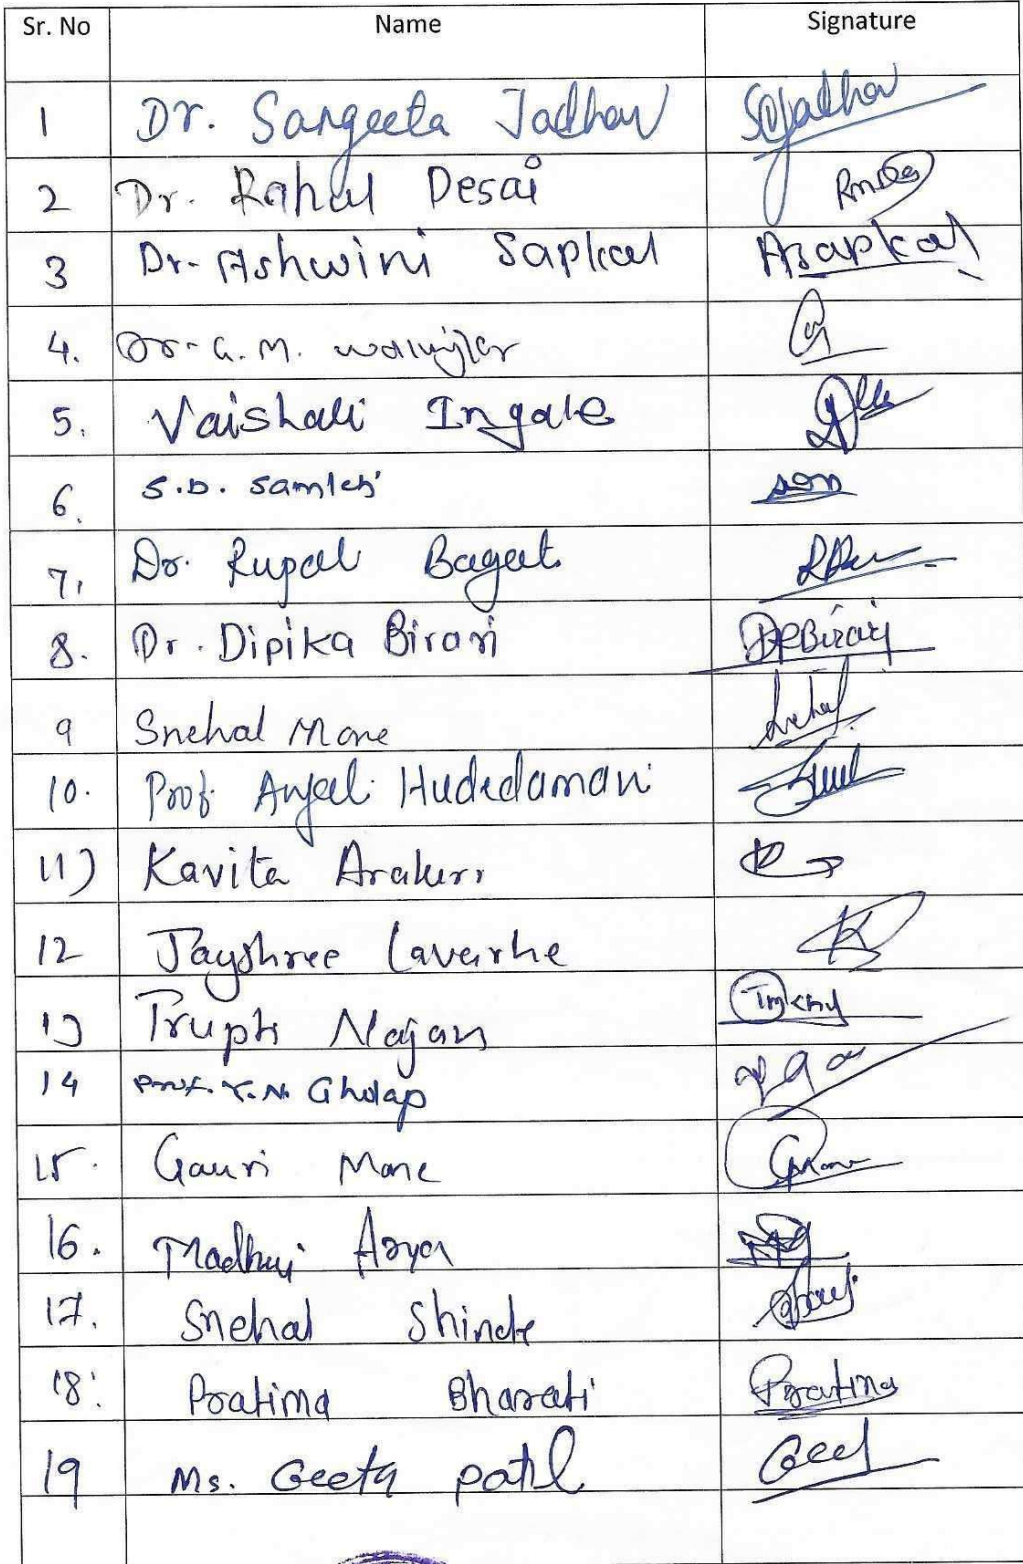 Sr. No Name Signature
1 Dr. Sangeeta Jadhav SJadhav
2 Dr. Rahul Desai
3 Dr. Ashwini Sapkal Asapkal
4. Dr. G. M. Walunjkar
5. Vaishali Ingale
6. S.D. Samleti
7. Dr. Rupali Bagate
8. Dr. Dipika Birari DPBirari
9 Snehal Mone Snehal
10. Prof. Anjali Hudedamani
11) Kavita Arakeri
12 Jayshree Laverhe
13 Trupti Najan
14 Prof. Y.N. Gholap
15. Gauri Mane
16. Madhuri Arya
17. Snehal Shinde
18. Pratima Bharati Pratima
19 Ms. Geeta Patil Geet